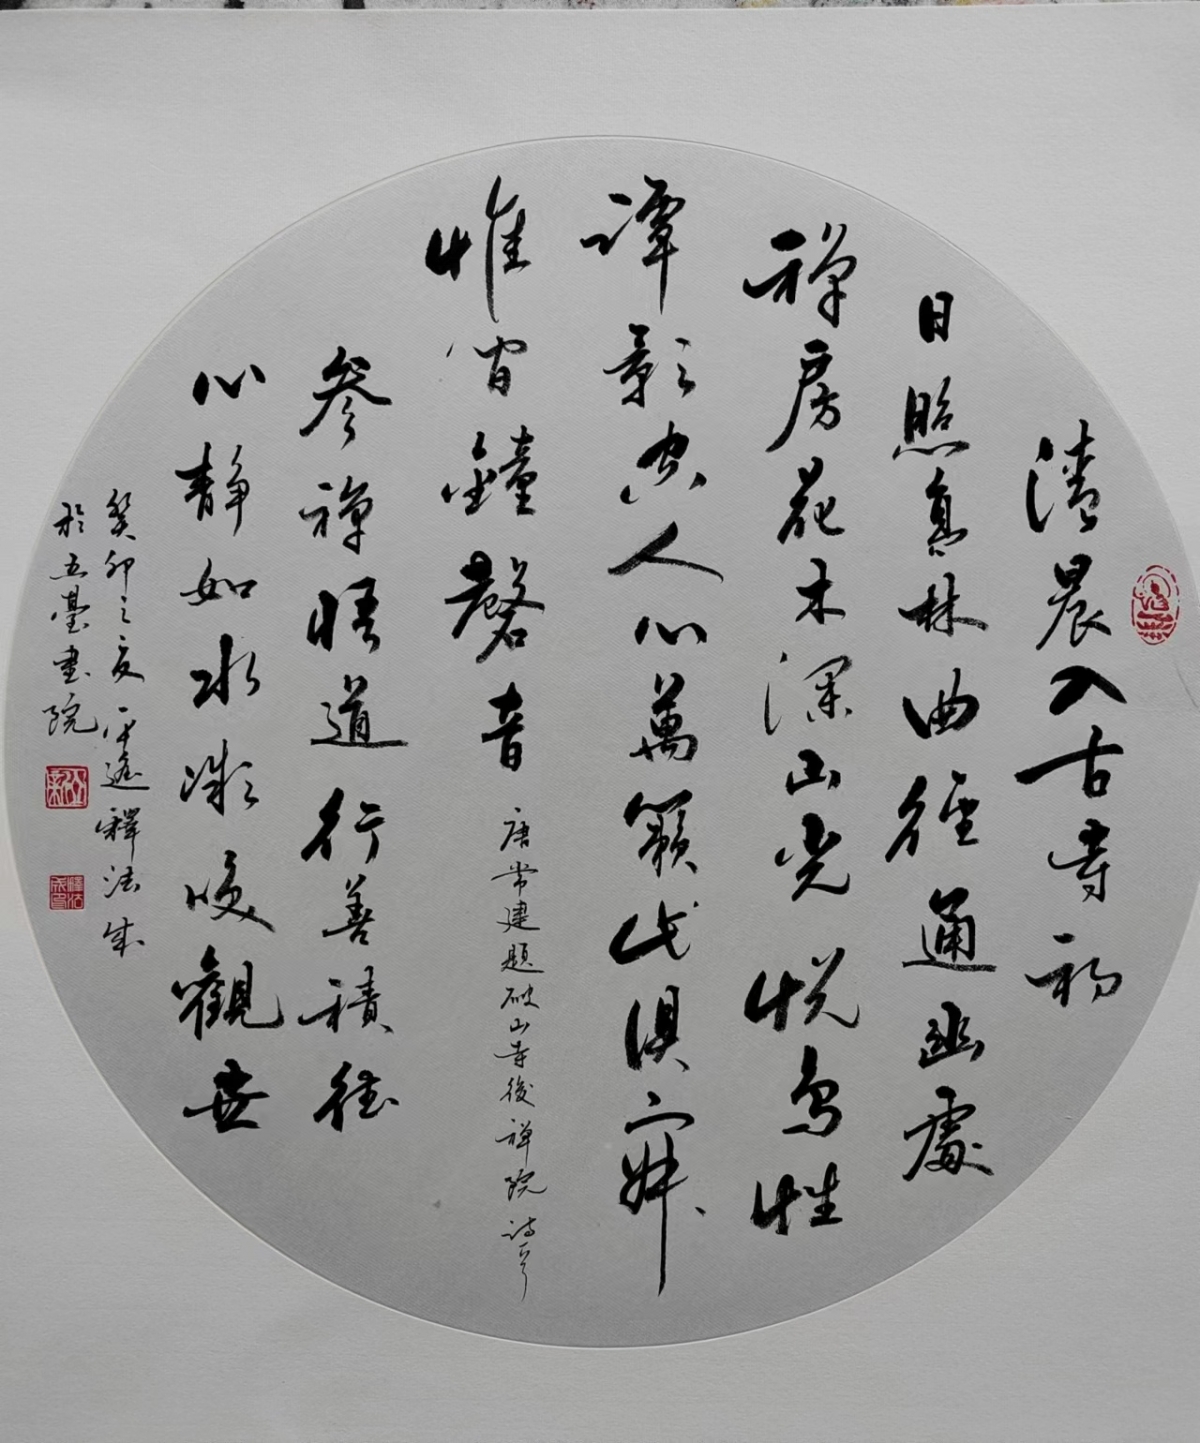 清晨入古寺初
日照高林曲徑通幽處
禅房花木深山光悦鳥性
潭影空人心萬籟此俱寂
惟闻鐘磬音
唐常建題破山寺後禅院詩一首
参禅悟道行善積德
心静如水淡泊觀世
癸卯之夏平遥釋法成
於五臺書院